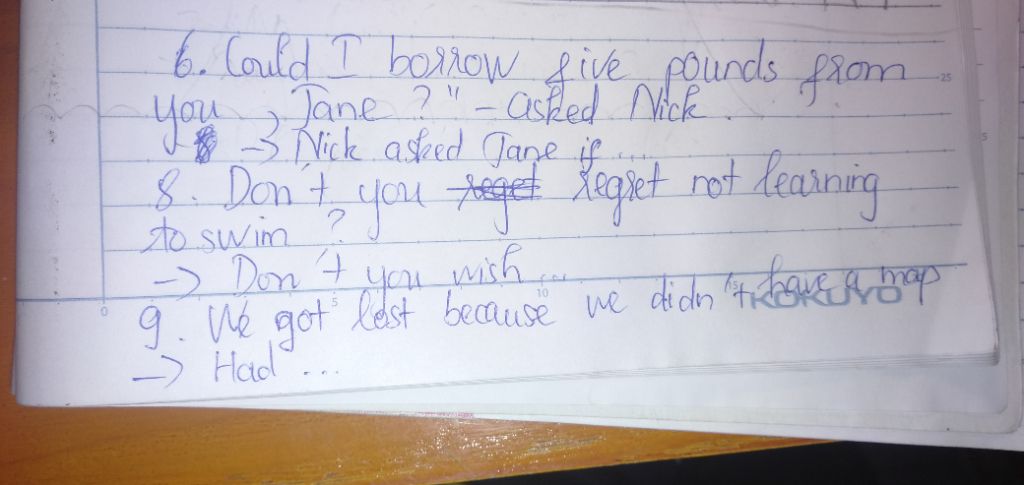 6. Could I borrow five pounds from
25
you, Jane?" - asked Nick.
5
-> Nick asked Jane if ...
8. Don't you reget regret not learning
to swim?
-> Don't you wish ...
0 5 10 15 KOKUYO
9. We got lost because we didn't have a map
-> Had ...